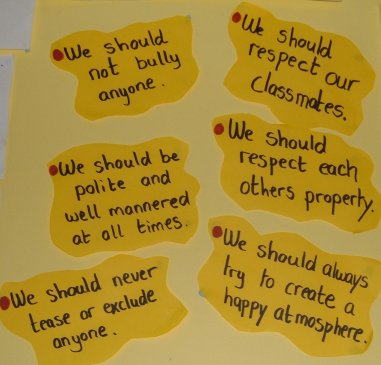 We should
not bully
anyone.
We should
respect our
classmates.
We should be
polite and
well mannered
at all times.
We should
respect each
others property.
We should never
tease or exclude
anyone.
We should always
try to create a
happy atmosphere.